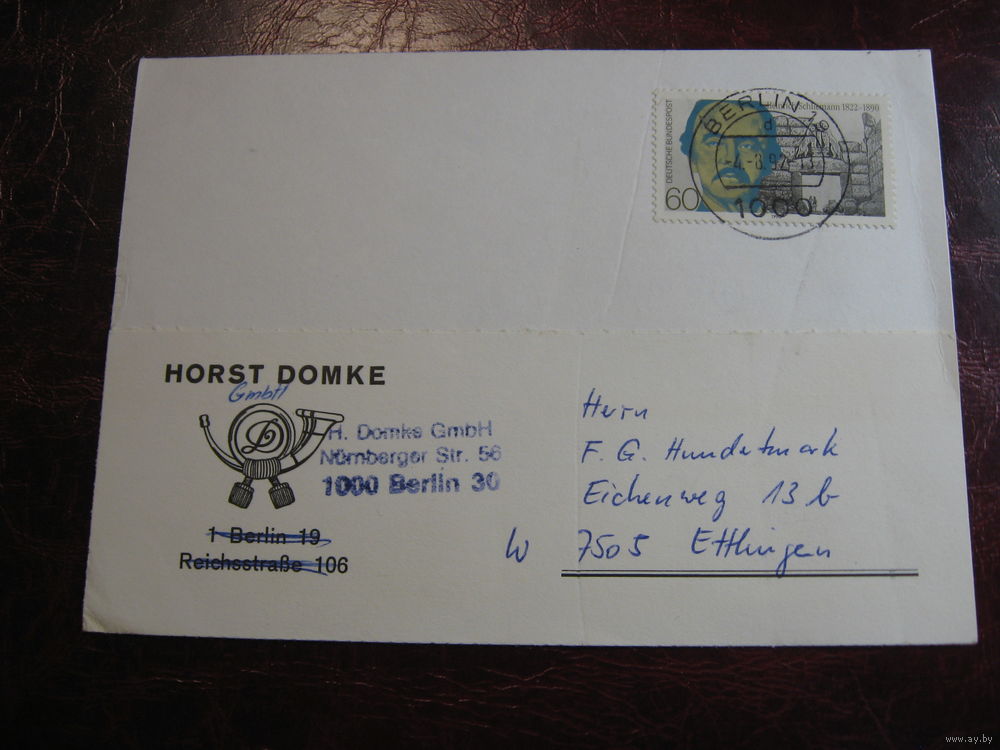 DEUTSCHE BUNDESPOST
60
Heinrich Schliemann 1822-1890
BERLIN
d
-4.-8.92
1000
HORST DOMKE
GmbH
D
H. Domke GmbH
Nürnberger Str. 56
1000 Berlin 30
1 Berlin 19
Reichsstraße 106
Herrn
F. G. Hundertmark
Eichenweg 13 b
W 7505 Ettlingen
www.ay.by